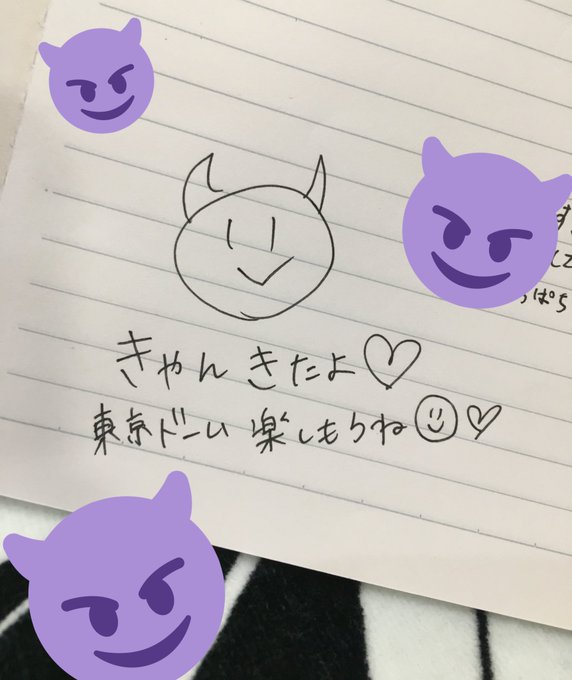 きゃん きたよ♡
東京ドーム 楽しもうね☺♡